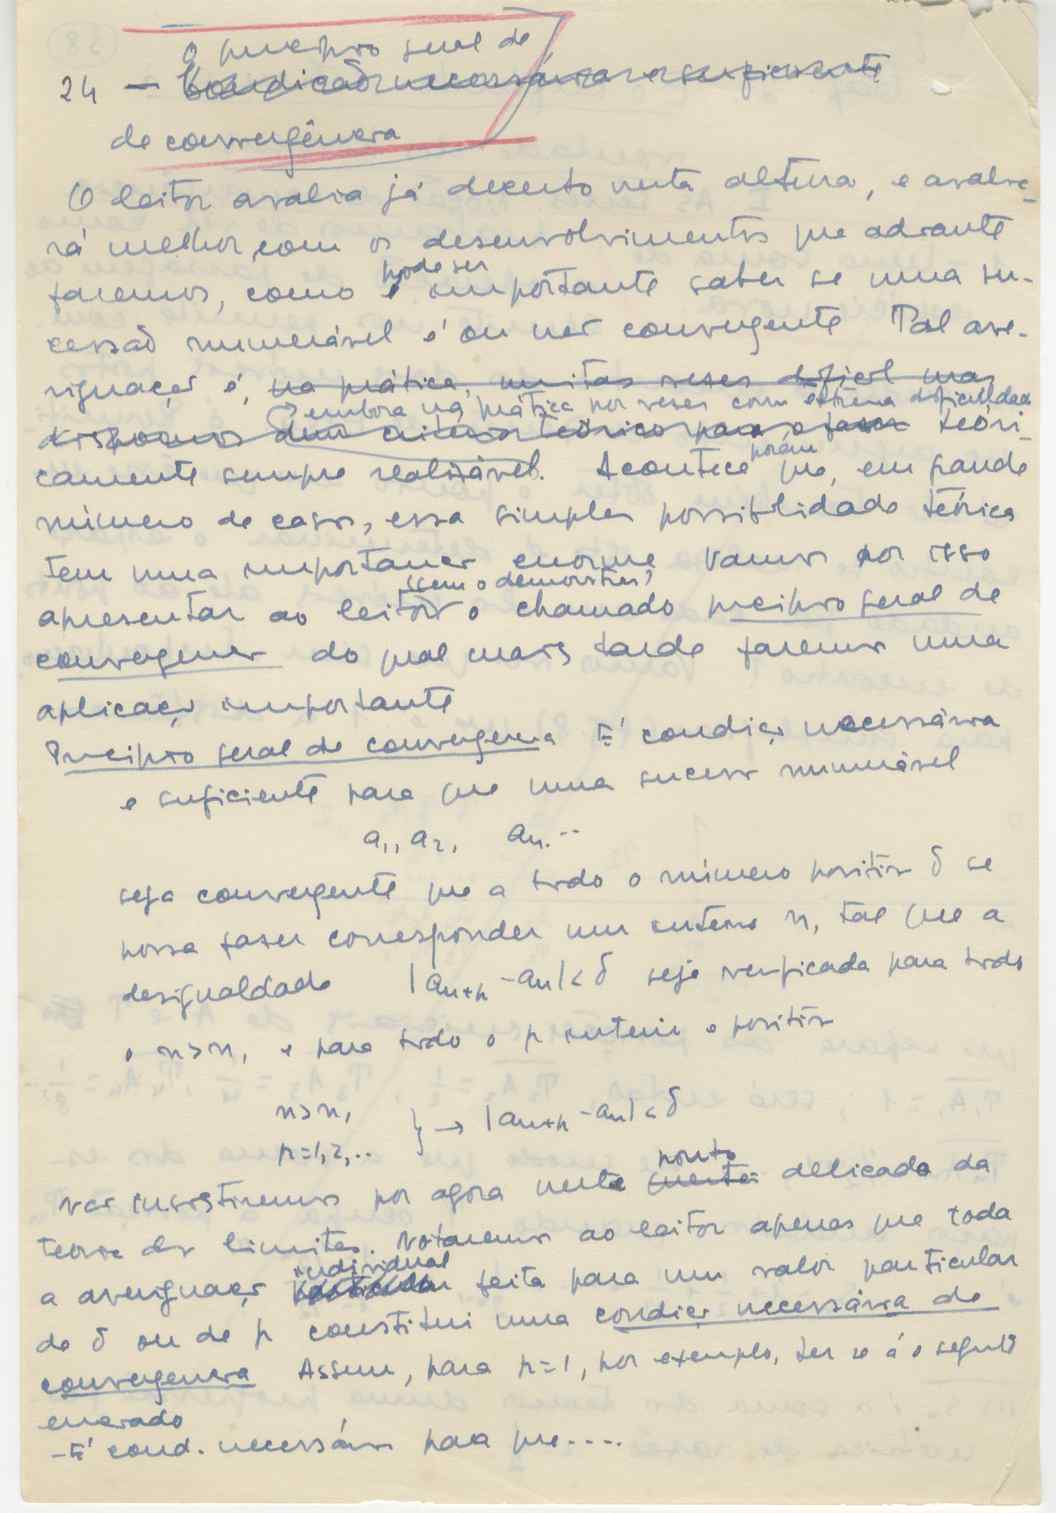 O princípio geral de
24 — Condição necessária e suficiente
de convergência
O leitor avalia já decerto nesta altura, e avalia-
rá melhor com os desenvolvimentos que adiante
faremos, como é pode ser importante saber se uma su-
cessão numerável é ou não convergente Tal ave-
riguação é, na prática, muitas vezes difícil mas
embora na prática por vezes com extrema dificuldade
dispomos dum critério teórico para o fazer teòri-
camente sempre realizável. Acontece porém que, em grande
número de casos, essa simples possibilidade teórica
tem uma importancia enorme Vamos por isso
apresentar ao leitor (sem o demonstrar) o chamado princípio geral de
convergencia do qual mais tarde faremos uma
aplicação importante
Princípio geral de convergencia É condição necessária
e suficiente para que uma sucessão numerável
a₁, a₂, aₙ...
seja convergente que a todo o número positivo δ se
possa fazer corresponder um inteiro n₁ tal que a
desigualdade |aₙ₊ₚ - aₙ| < δ seja verificada para todo
o n>n₁ e para todo o p inteiro e positivo
n>n₁
p=1,2,... } → |aₙ₊ₚ - aₙ| < δ
Não insistiremos por agora neste ponto delicado da
teoria dos limites. Notaremos ao leitor apenas que toda
a averiguação individual feita para um valor particular
de δ ou de p constitui uma condição necessária de
convergencia Assim, para p=1, por exemplo, ter-se-á o seguinte
enunciado
– É cond. necessária para que....